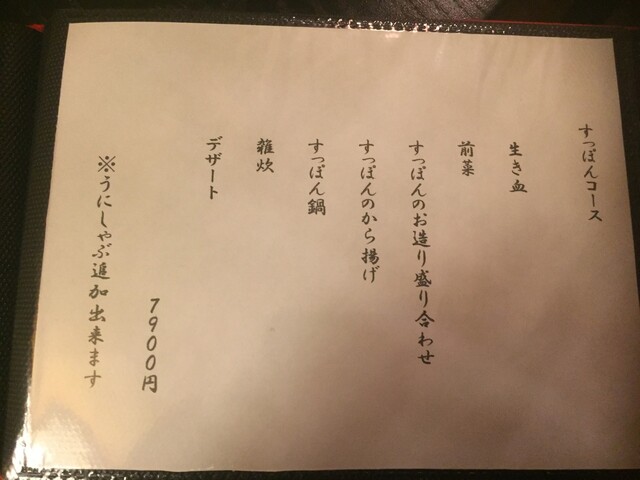 すっぽんコース
生き血
前菜
すっぽんのお造り盛り合わせ
すっぽんのから揚げ
すっぽん鍋
雑炊
デザート
7900円
※うにしゃぶ追加出来ます